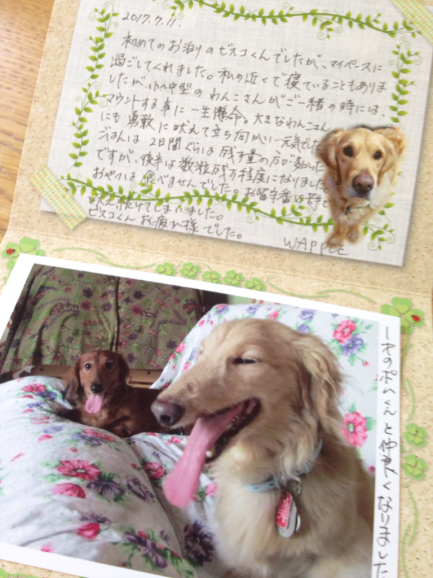 2017.7.11.
初めてのお泊りのビスコくんでしたが、マイペースに
過ごしてくれました。私の近くで寝ていることもありま
したが、小中型のわんこさんがご一緒の時には、
マウントする事に一生懸命。大きなわんこさん
にも勇敢に吠えて立ち向かい元気でした
ごはんは2日間ぐらいは残す量の方が多かった
ですが、後半は数粒残す程度になりました
おやつは食べませんでした。お留守番は
吠え続けてしまいました。
ビスコくんお疲れ様でした。
WAPPLE
一才のポムくんと仲良くなりました